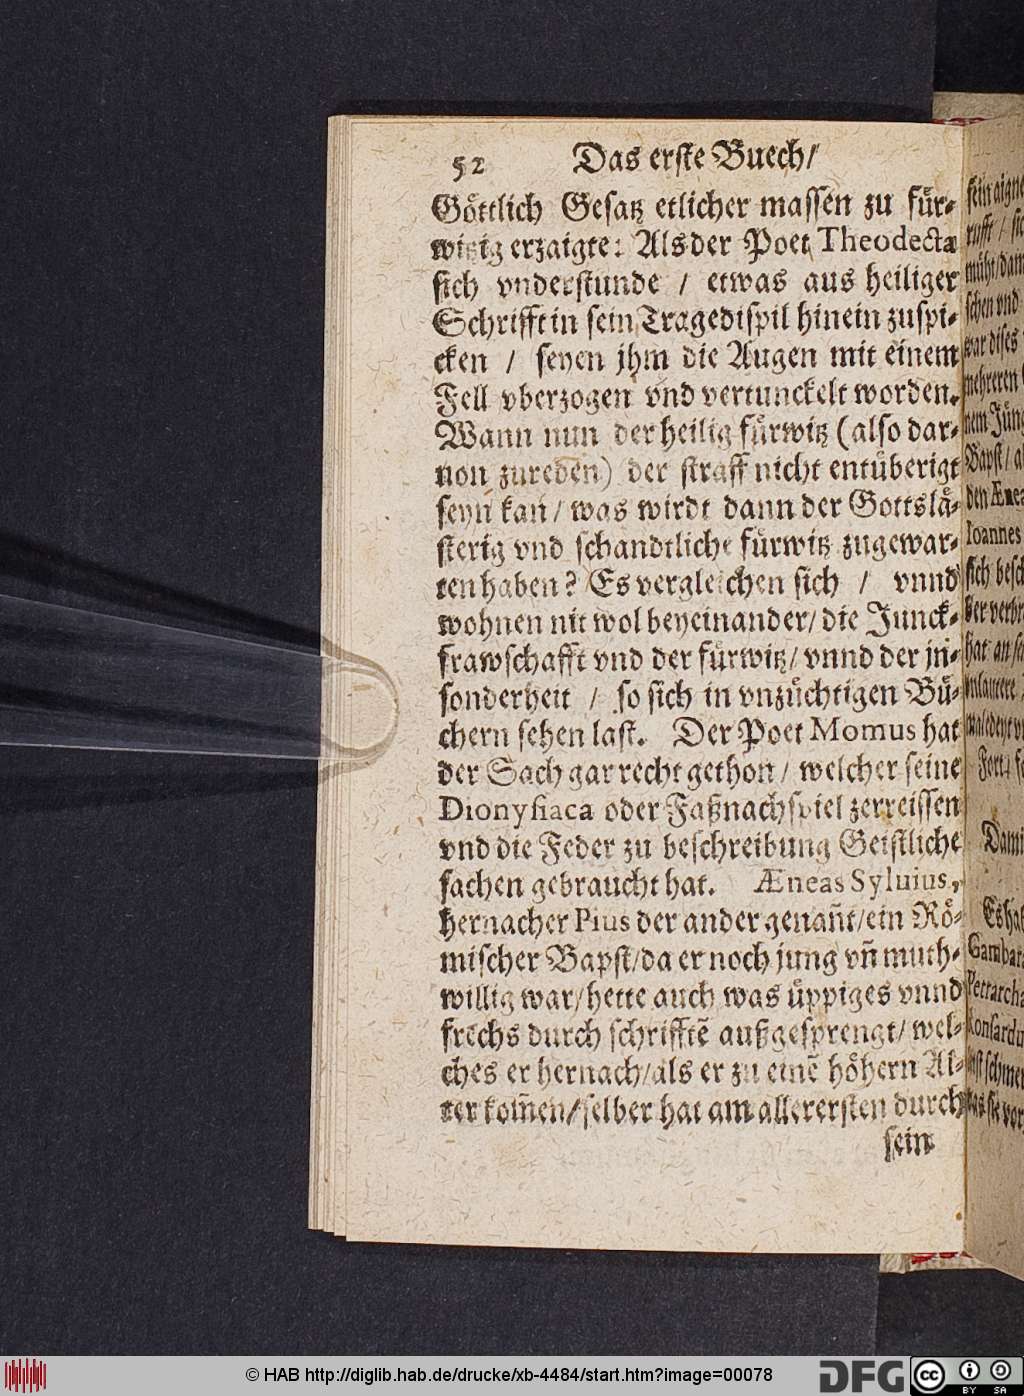 52 Das erste Buech/
Göttlich Gesatz etlicher massen zu für-
witzig erzaigte: Als der Poet Theodectæ
sich vnderstunde / etwas aus heiliger
Schrifft in sein Tragedispil hinein zuspi-
cken / seyen jhm die Augen mit einem
Fell vberzogen vnd vertunckelt worden.
Wann nun der heilig fürwitz (also dar-
uon zureden) der straff nicht entüberigt
seyn kan / was wirdt dann der Gottslä-
sterig vnd schandtliche fürwitz zugewar-
ten haben? Es vergleichen sich / vnnd
wohnen nit wol beyeinander/ die Junck-
frawschafft vnd der fürwitz/ vnnd der in-
sonderheit / so sich in vnzüchtigen Bü-
chern sehen last. Der Poet Momus hat
der Sach gar recht gethon / welcher seine
Dionysiaca oder Faßnachspiel zerreissen
vnd die Feder zu beschreibung Geistliche
sachen gebraucht hat. Æneas Syluius,
hernacher Pius der ander genañt/ein Rö-
mischer Bapst/da er noch jung vñ muth-
willig war/hette auch was üppiges vnnd
frechs durch schrifftē außgesprengt/ wel-
ches er hernach/als er zu einē höhern Al-
ter kom̃en/selber hat am allerersten durch
sein
sein aigne
rufft /
müht/dam
schen vnd
war dises
mehreren
nem Jüng
Bapst/
den Ænea
Ioannes
sich besch
hat an
Damit
Es hat
Gambara
Petrarcha
Ronsardu
© HAB http://diglib.hab.de/drucke/xb-4484/start.htm?image=00078
DFG
cc BY SA